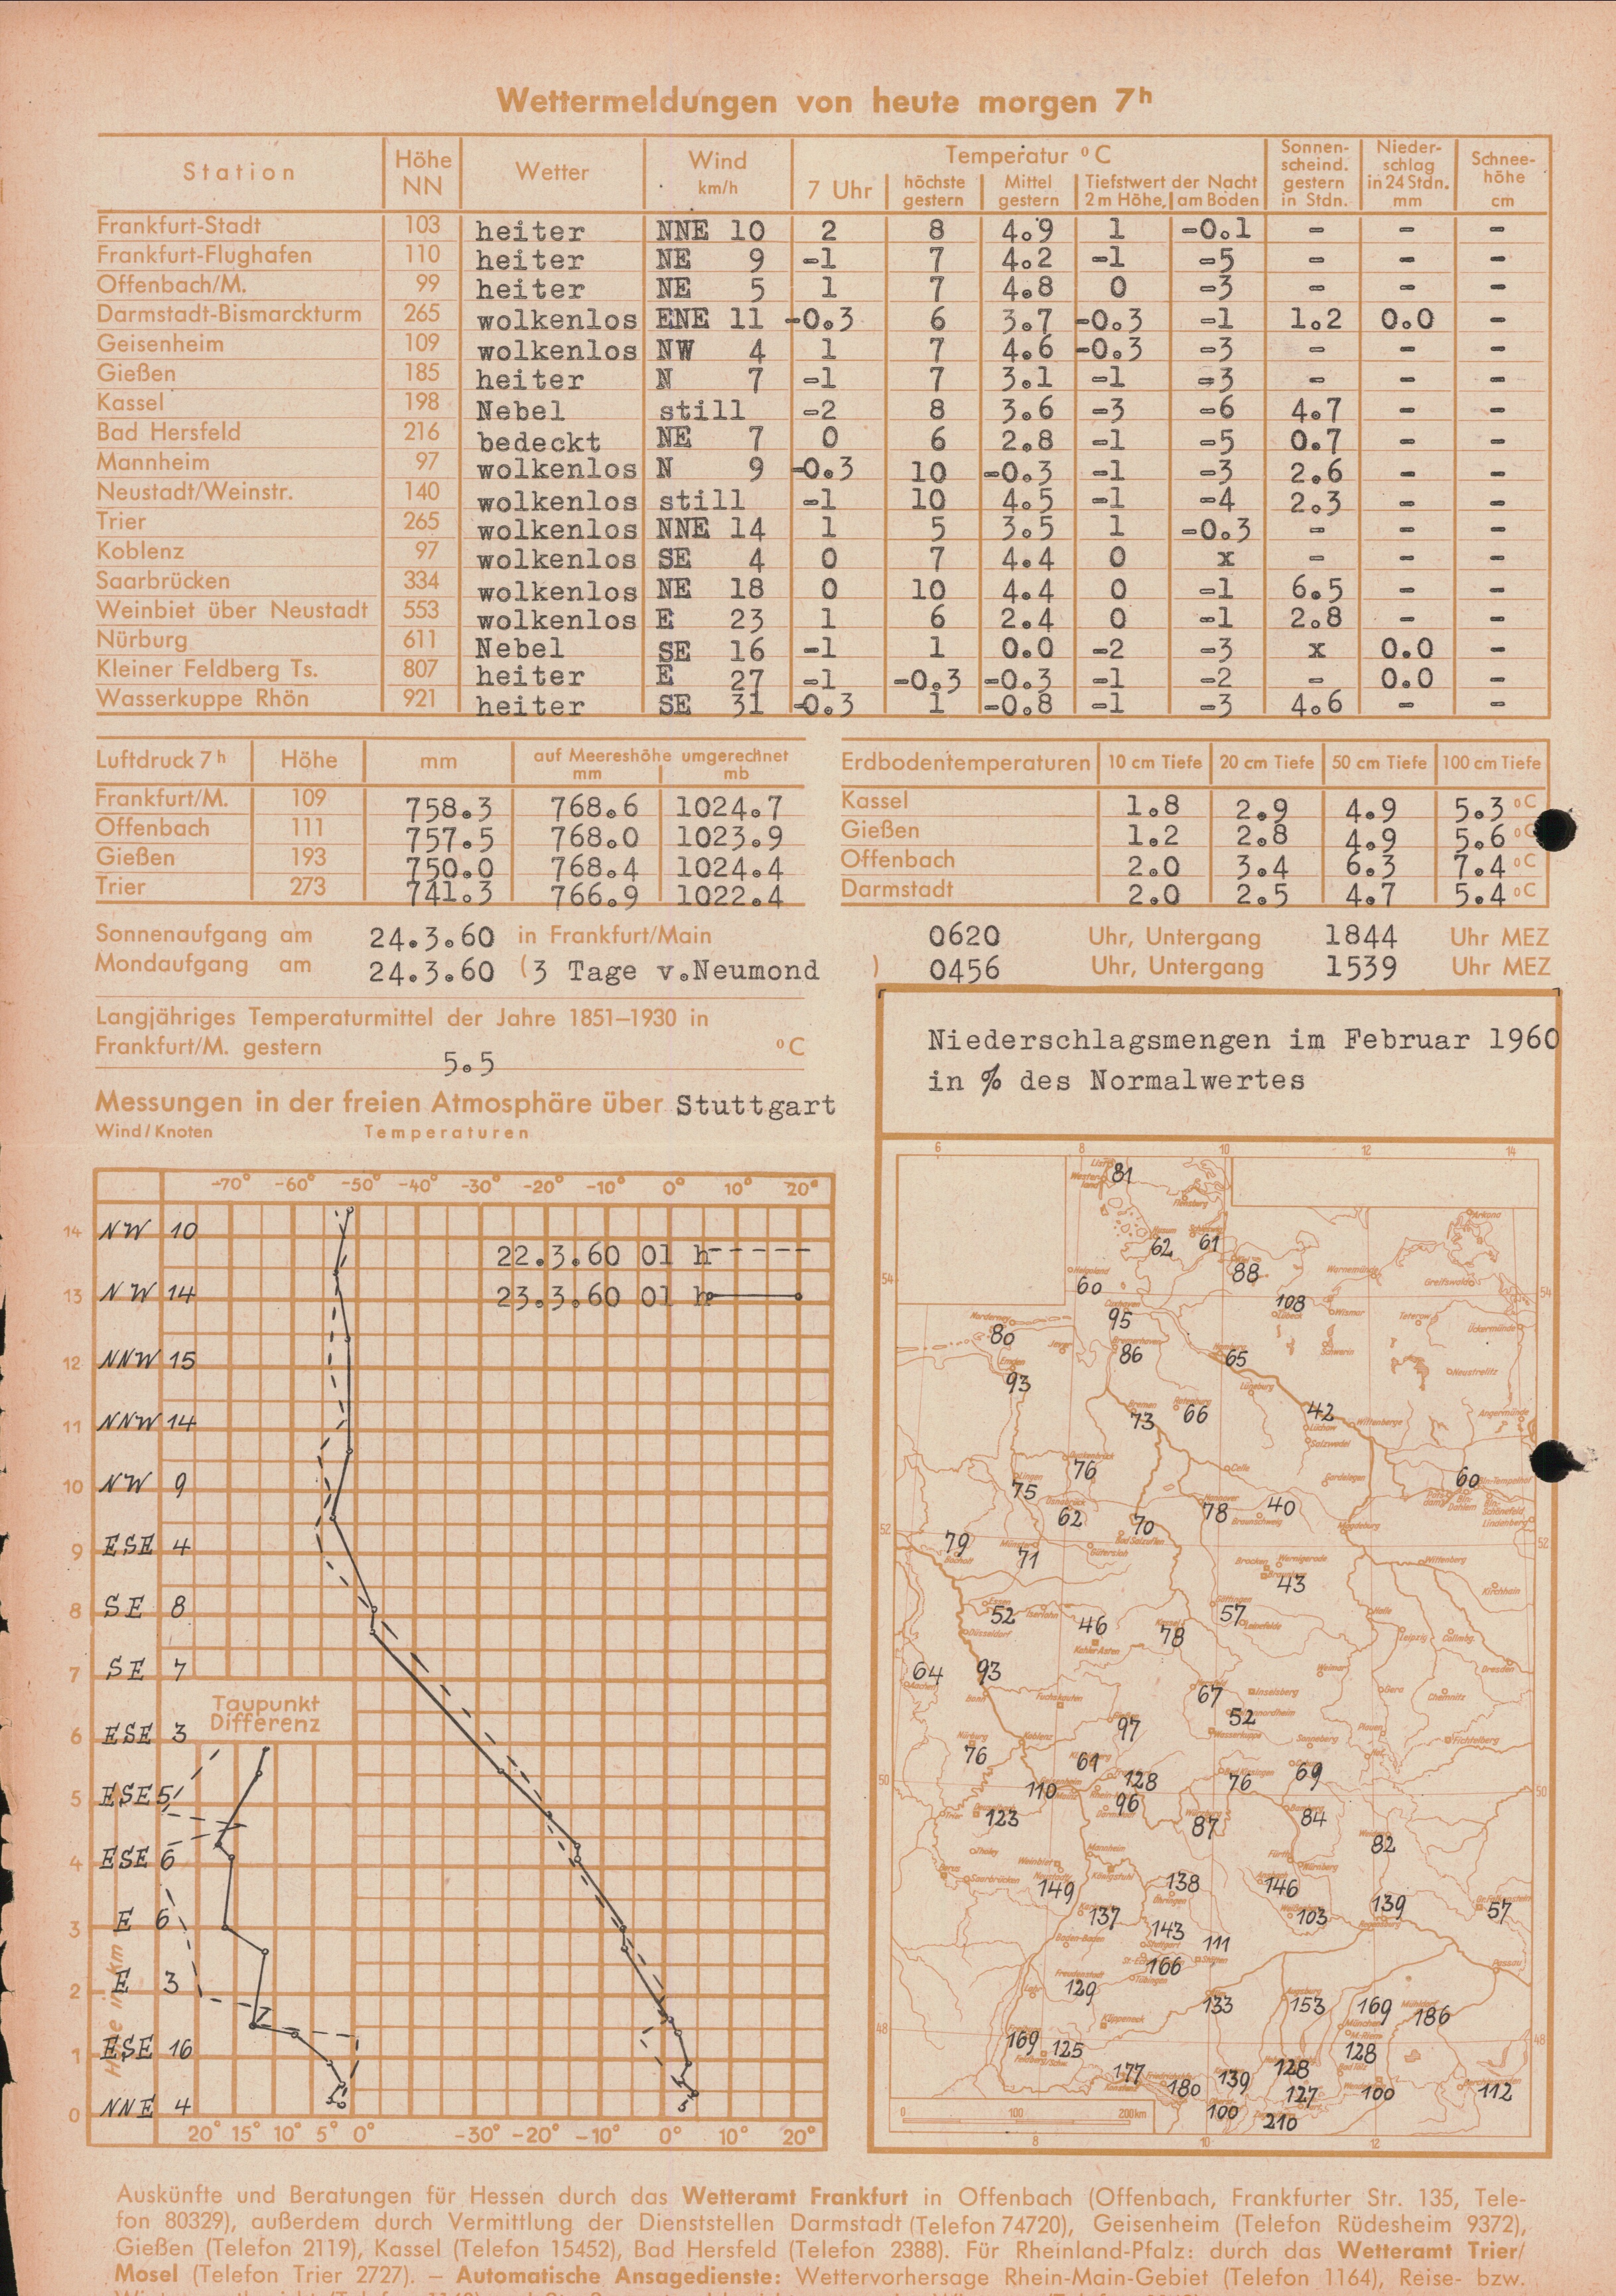 Wettermeldungen von heute morgen 7h
Station Höhe NN Wetter Wind km/h Temperatur °C Sonnenscheind. gestern in Stdn. Niederschlag in 24 Stdn. mm Schneehöhe cm
7 Uhr höchste gestern Mittel gestern Tiefstwert der Nacht 2 m Höhe, am Boden
Frankfurt-Stadt 103 heiter NNE 10 2 8 4.9 1 -0.1 - - -
Frankfurt-Flughafen 110 heiter NE 9 -1 7 4.2 -1 -5 - - -
Offenbach/M. 99 heiter NE 5 1 7 4.8 0 -3 - - -
Darmstadt-Bismarckturm 265 wolkenlos ENE 11 -0.3 6 3.7 -0.3 -1 1.2 0.0 -
Geisenheim 109 wolkenlos NW 4 1 7 4.6 -0.3 -3 - - -
Gießen 185 heiter N 7 -1 7 3.1 -1 -3 - - -
Kassel 198 Nebel still -2 8 3.6 -3 -6 4.7 - -
Bad Hersfeld 216 bedeckt NE 7 0 6 2.8 -1 -5 0.7 - -
Mannheim 97 wolkenlos N 9 -0.3 10 -0.3 -1 -3 2.6 - -
Neustadt/Weinstr. 140 wolkenlos still -1 10 4.5 -1 -4 2.3 - -
Trier 265 wolkenlos NNE 14 1 5 3.5 1 -0.3 - - -
Koblenz 97 wolkenlos SE 4 0 7 4.4 0 x - - -
Saarbrücken 334 wolkenlos NE 18 0 10 4.4 0 -1 6.5 - -
Weinbiet über Neustadt 553 wolkenlos E 23 1 6 2.4 0 -1 2.8 - -
Nürburg 611 Nebel SE 16 -1 1 0.0 -2 -3 x 0.0 -
Kleiner Feldberg Ts. 807 heiter E 27 -1 -0.3 -0.3 -1 -2 - 0.0 -
Wasserkuppe Rhön 921 heiter SE 31 -0.3 1 -0.8 -1 -3 4.6 - -
Luftdruck 7h Höhe mm auf Meereshöhe umgerechnet mm mb
Frankfurt/M. 109 758.3 768.6 1024.7
Offenbach 111 757.5 768.0 1023.9
Gießen 193 750.0 768.4 1024.4
Trier 273 741.3 766.9 1022.4
Erdbodentemperaturen 10 cm Tiefe 20 cm Tiefe 50 cm Tiefe 100 cm Tiefe
Kassel 1.8 2.9 4.9 5.3 °C
Gießen 1.2 2.8 4.9 5.6 °C
Offenbach 2.0 3.4 6.3 7.4 °C
Darmstadt 2.0 2.5 4.7 5.4 °C
Sonnenaufgang am 24.3.60 in Frankfurt/Main 0620 Uhr, Untergang 1844 Uhr MEZ
Mondaufgang am 24.3.60 (3 Tage v.Neumond ) 0456 Uhr, Untergang 1539 Uhr MEZ
Langjähriges Temperaturmittel der Jahre 1851–1930 in
Frankfurt/M. gestern 5.5 °C
Messungen in der freien Atmosphäre über Stuttgart
Wind/Knoten Temperaturen
-70° -60° -50° -40° -30° -20° -10° 0° 10° 20°
14 NW 10
22.3.60 01 h
13 NW 14
23.3.60 01 h
12 NNW 15
11 NNW 14
10 NW 9
9 ESE 4
8 SE 8
7 SE 7
Taupunkt
Differenz
6 ESE 3
5 ESE 5
4 ESE 6
3 E 6
2 E 3
1 ESE 16
0 NNE 4
Höhe in km
20° 15° 10° 5° 0° -30° -20° -10° 0° 10° 20°
Niederschlagsmengen im Februar 1960
in % des Normalwertes
6 8 10 12 14
81
62 61
54 60 88 54
108
95
80
86 65
93
73 66 42
76 60
75
62 70 78 40
52 79 71 52
43
52 46 78 57
64 93
67
52
97
76
61 69
50 110 128 76 50
123 96 87 84
82
149 138 146
137 103 139 57
143 111
166
129
133 153 169 186
48 169 125 128 48
177 180 139 128
127 100 112
100 210
0 100 200 km
8 10 12
Auskünfte und Beratungen für Hessen durch das Wetteramt Frankfurt in Offenbach (Offenbach, Frankfurter Str. 135, Tele-
fon 80329), außerdem durch Vermittlung der Dienststellen Darmstadt (Telefon 74720), Geisenheim (Telefon Rüdesheim 9372),
Gießen (Telefon 2119), Kassel (Telefon 15452), Bad Hersfeld (Telefon 2388). Für Rheinland-Pfalz: durch das Wetteramt Trier/
Mosel (Telefon Trier 2727). — Automatische Ansagedienste: Wettervorhersage Rhein-Main-Gebiet (Telefon 1164), Reise- bzw.